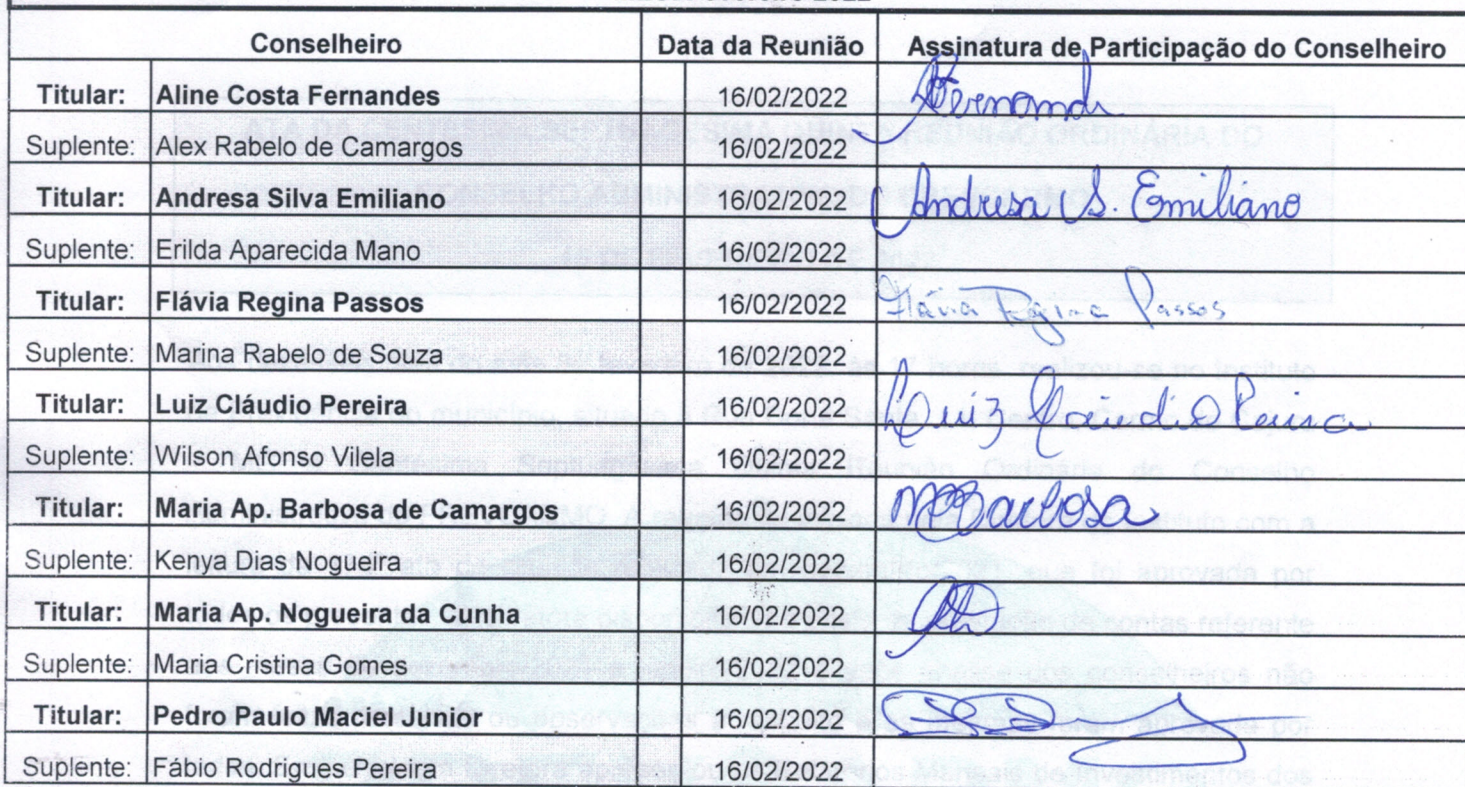 Conselheiro Data da Reunião Assinatura de Participação do Conselheiro
Titular: Aline Costa Fernandes 16/02/2022
Suplente: Alex Rabelo de Camargos 16/02/2022
Titular: Andresa Silva Emiliano 16/02/2022 Andresa S. Emiliano
Suplente: Erilda Aparecida Mano 16/02/2022
Titular: Flávia Regina Passos 16/02/2022 Flávia Regina Passos
Suplente: Marina Rabelo de Souza 16/02/2022
Titular: Luiz Cláudio Pereira 16/02/2022 Luiz Cláudio Pereira
Suplente: Wilson Afonso Vilela 16/02/2022
Titular: Maria Ap. Barbosa de Camargos 16/02/2022 MBarbosa
Suplente: Kenya Dias Nogueira 16/02/2022
Titular: Maria Ap. Nogueira da Cunha 16/02/2022
Suplente: Maria Cristina Gomes 16/02/2022
Titular: Pedro Paulo Maciel Junior 16/02/2022
Suplente: Fábio Rodrigues Pereira 16/02/2022